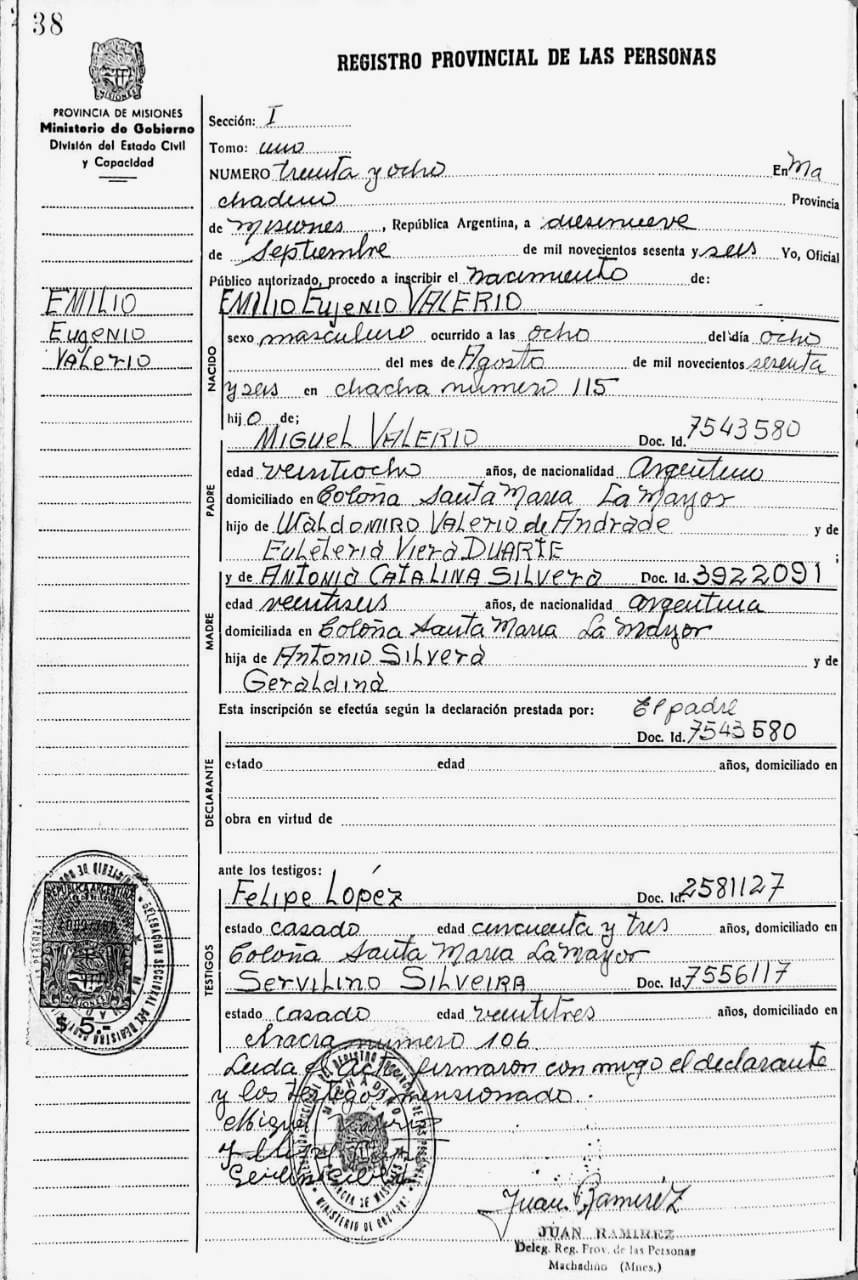 38
REGISTRO PROVINCIAL DE LAS PERSONAS
PROVINCIA DE MISIONES
Ministerio de Gobierno
División del Estado Civil
y Capacidad
EMILIO
EugENIO
VALERIO
Sección: I
Tomo: uno
NUMERO treinta y ocho En Ma
chadino Provincia
de Misiones, República Argentina, a diesinueve
de Septiembre de mil novecientos sesenta y seis Yo, Oficial
Público autorizado, procedo a inscribir el nacimiento de:
EMILIO EugENIO VALERIO
NACIDO
sexo masculino ocurrido a las ocho del día ocho
del mes de Agosto de mil novecientos sesenta
y seis en chacha numero 115
hijo de;
MIGUEL VALERIO Doc. Id. 7543580
PADRE
edad veintiocho años, de nacionalidad Argentino
domiciliado en Coloña Santa Maria La Mayor
hijo de WALDOMIRO VALERIO de Andrade y de
EULETERIA Viera DUARTE ;
y de ANTONIA CATALINA SILVERA Doc. Id. 3922091
MADRE
edad veintiseis años, de nacionalidad argentina
domiciliada en Coloña Santa Maria La Mayor
hija de Antonio SILVERA y de
Geraldina
Esta inscripción se efectúa según la declaración prestada por: El padre
Doc. Id. 7543580
DECLARANTE
estado edad años, domiciliado en
obra en virtud de
ante los testigos:
Felipe López Doc. Id. 2581127
TESTIGOS
estado casado edad cincuenta y tres años, domiciliado en
Coloña Santa Maria La Mayor
SERVILINO SILVEIRA Doc. Id. 7556117
estado casado edad veintitres años, domiciliado en
chacra numero 106
Leida el acta firmaron con migo el declarante
y los testigos mensionado.
Miguel
REPUBLICA ARGENTINA
MISIONES
$ 5.-
MACHADINO
PROVINCIA DE MISIONES
Juan Ramirez
JUAN RAMIREZ
Deleg. Reg. Prov. de las Personas
Machadiño (Mnes.)